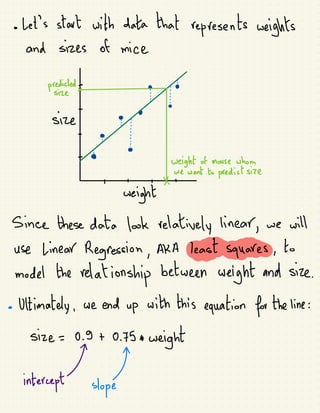 . Let's start with data that represents weights
and sizes of mice
predicted
size
size
weight of mouse whom
we want to predict size
weight
Since these data look relatively linear, we will
use Linear Regression, AKA least squares, to
model the relationship between weight and size.
. Ultimately, we end up with this equation for the line:
size = 0.9 + 0.75 * weight
intercept
slope